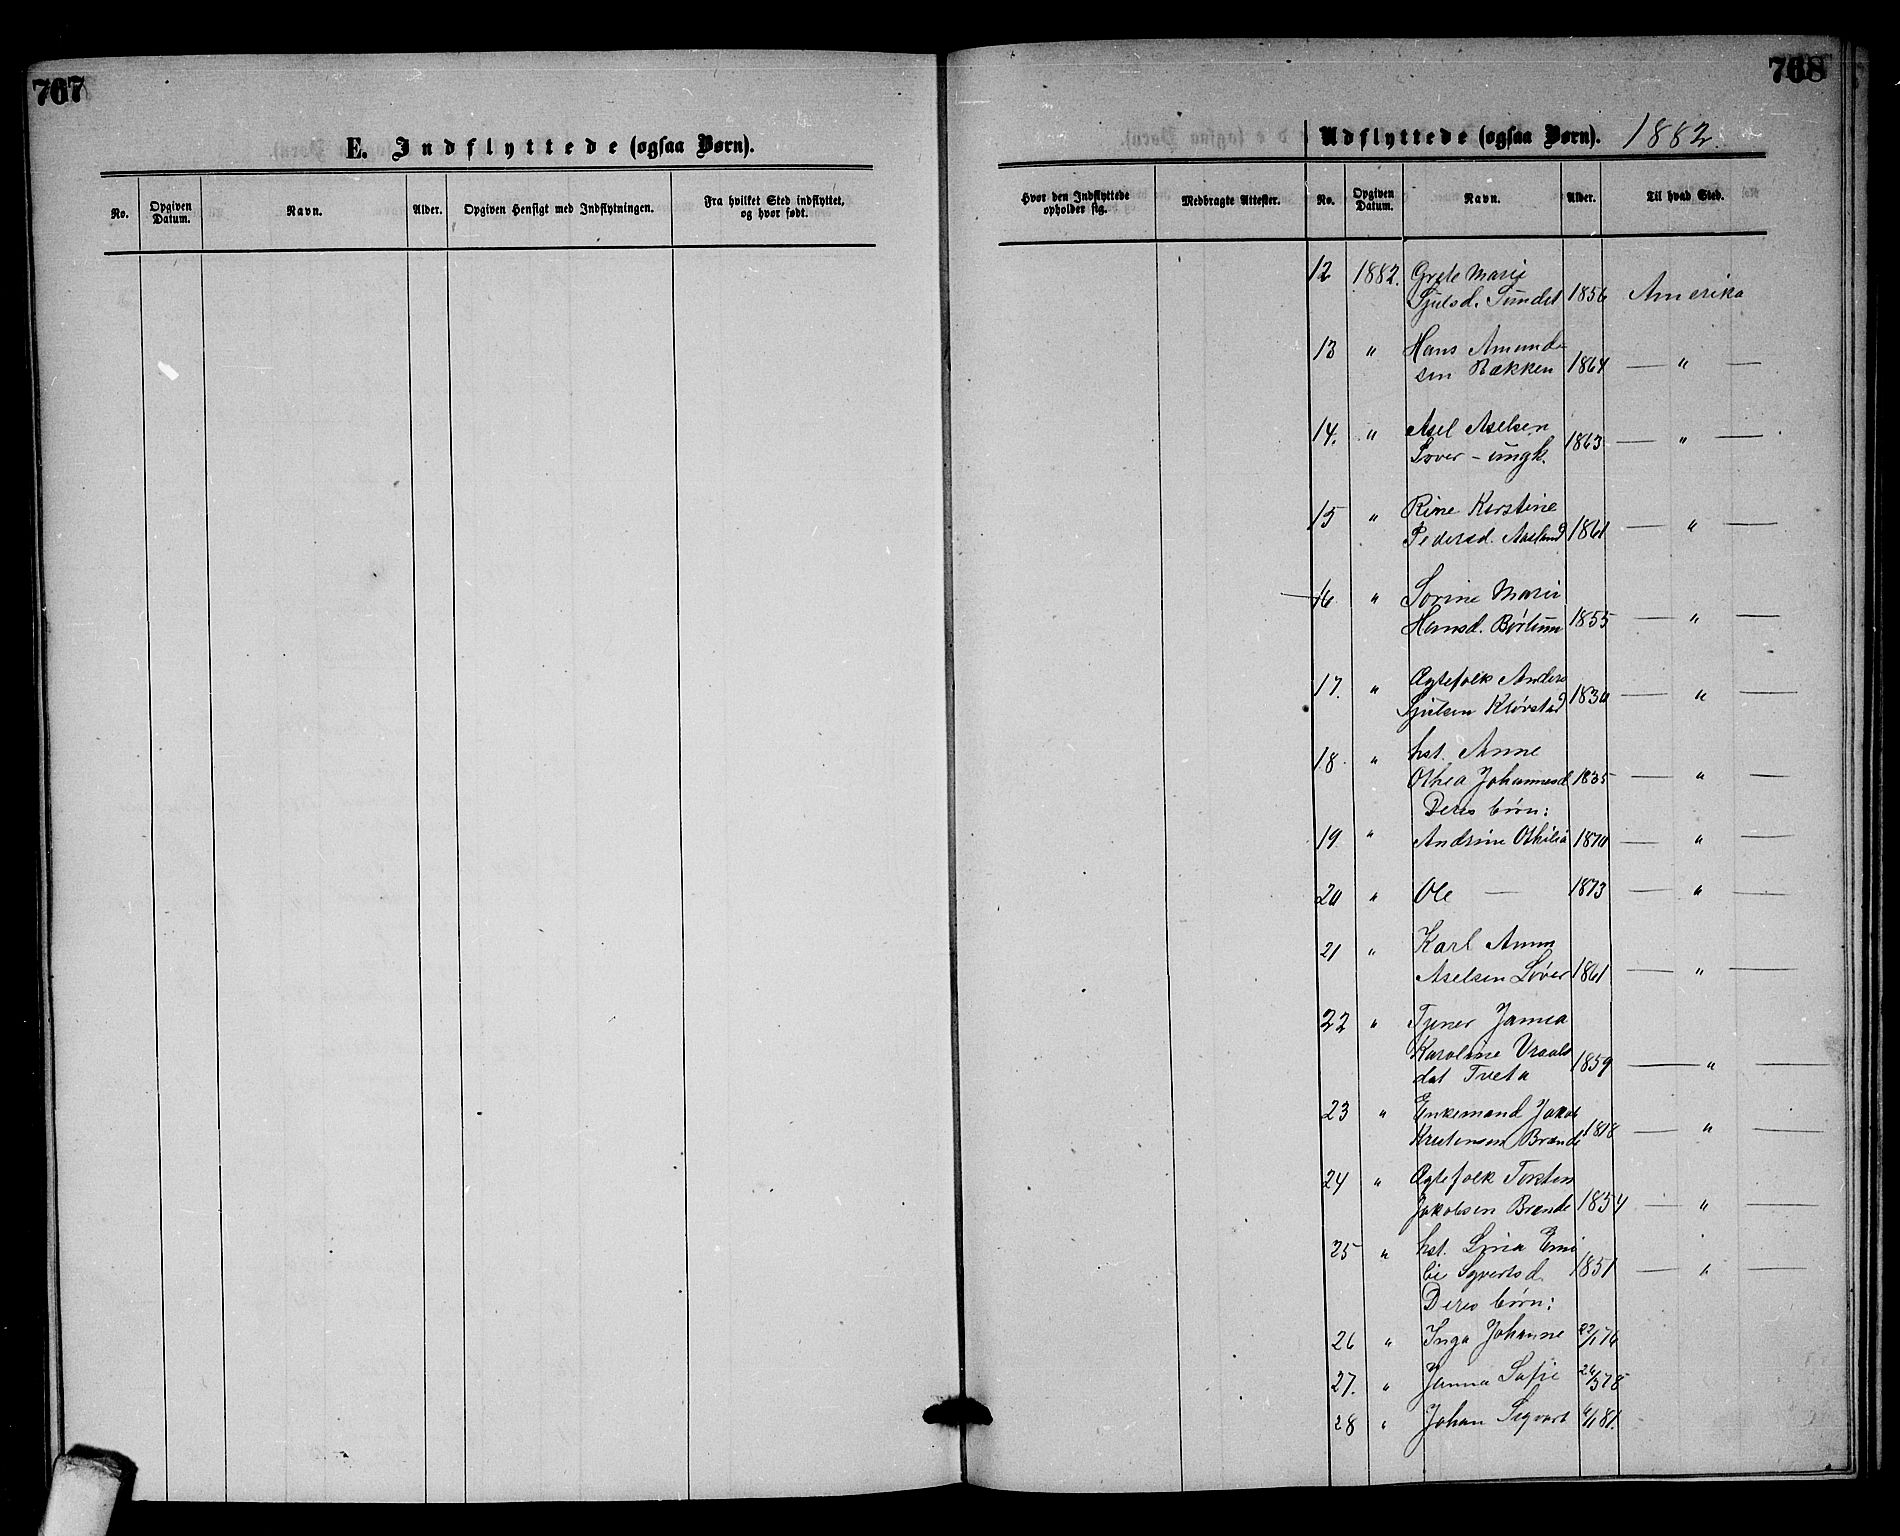 767
E. Indflyttede (ogsaa Børn).
No.
Opgiven Datum.
Navn.
Alder.
Opgiven Hensigt med Indflytningen.
Fra hvilket Sted indflyttet, og hvor født.
768
Udflyttede (ogsaa Børn). 1882.
Hvor den Indflyttede opholder sig.
Medbragte Attester.
No.
Opgiven Datum.
Navn.
Alder.
Til hvad Sted.
12 1882. Grete Marie
Sjulsd. Sundet 1856 Amerika
13 " Hans Amund-
sen Bækken 1864 — " —
14. " Axel Axelsen
Løver - ungk. 1863 — " —
15 " Rine Karstine
Pedersd. Aasland 1861 — " —
16 " Sorine Marie
Hansd. Børtum 1855 — " —
17. " Ægtefolk Anders
Sjulsen Kløvstad 1830 — " —
18 " hst. Anne
Othea Johannesd 1835 — " —
Deres børn:
19 " Andrine Othilia 1870 — " —
20 " Ole — 1873 — " —
21 " Karl
Axelsen Løver 1861 — " —
22 " Tjener
Karoline
dat Tveta 1859 — " —
23 " Enkemand Jakob
Kristensen Brænde 1818 — " —
24 " Ægtefolk Torsten
Jakobsen Brænde 1854 — " —
25 " hst. Lina Emi
lie Syvertsd. 1851 — " —
Deres børn:
26 " Inga Johanne 22/1 76
27. " Janna Sofie 26/3 78
28 " Johan Sigvart 6/1 81.